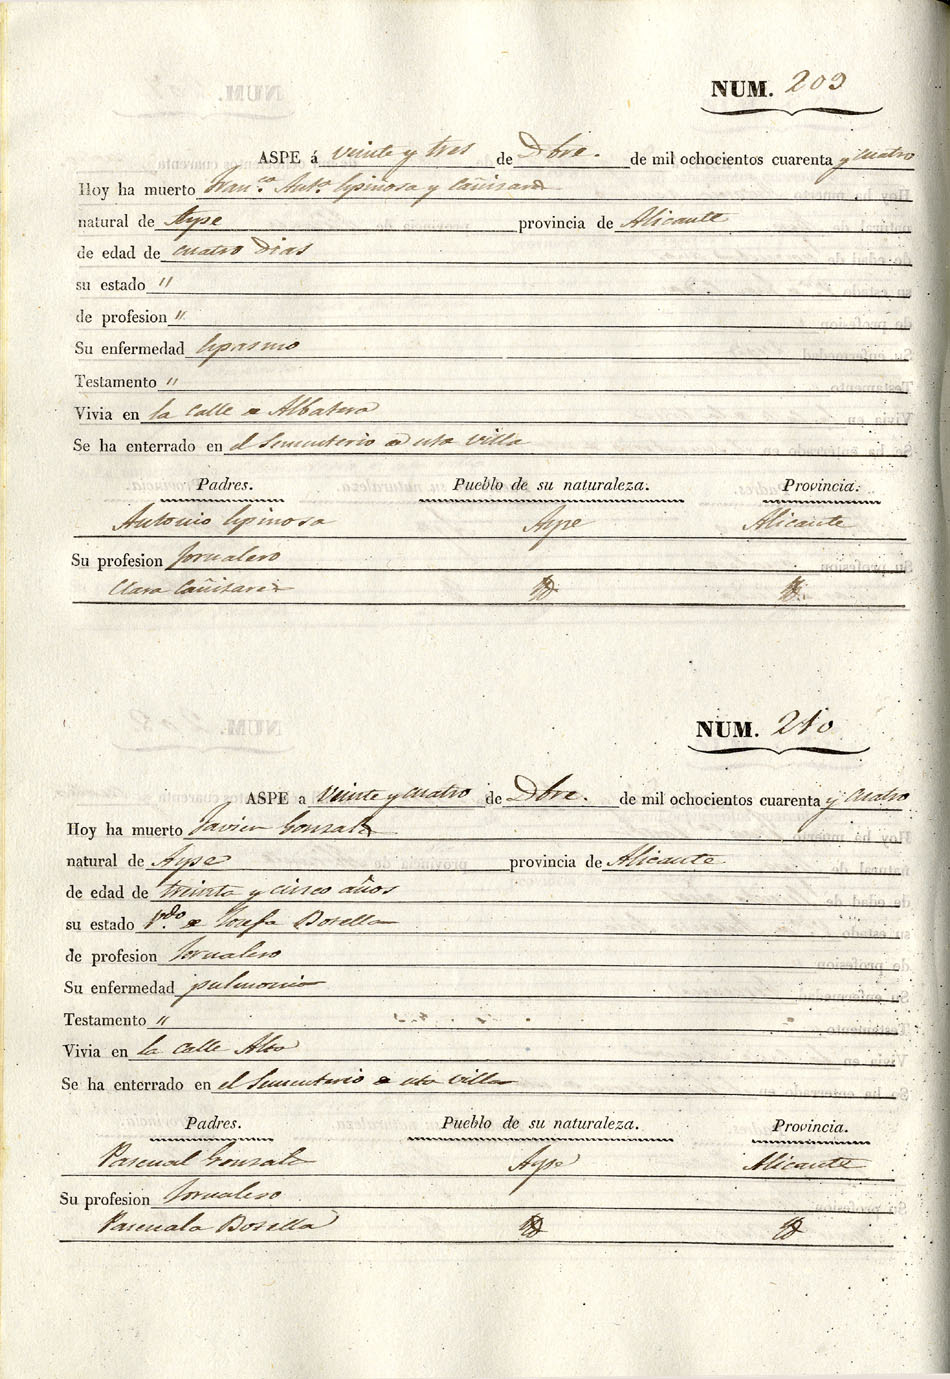 NUM. 209
ASPE á veinte y tres de Dbre. de mil ochocientos cuarenta y cuatro
Hoy ha muerto Fran.ca Ant.a Espinosa y Cañizares
natural de Aspe provincia de Alicante
de edad de cuatro dias
su estado "
de profesion "
Su enfermedad Espasmo
Testamento "
Vivia en la Calle de Albatera
Se ha enterrado en el Sementerio de esta villa
Padres. Pueblo de su naturaleza. Provincia.
Antonio Espinosa Aspe Alicante
Su profesion Jornalero
Clara Cañizares Id Id
NUM. 210
ASPE a Veinte y cuatro de Dbre. de mil ochocientos cuarenta y cuatro
Hoy ha muerto Javier Gonzalez
natural de Aspe provincia de Alicante
de edad de treinta y cinco años
su estado V.do de Josefa Botella
de profesion Jornalero
Su enfermedad pulmonia
Testamento "
Vivia en la Calle Alta
Se ha enterrado en el Sementerio de esta villa
Padres. Pueblo de su naturaleza. Provincia.
Pascual Gonzalez Aspe Alicante
Su profesion Jornalero
Pascuala Botella Id Id